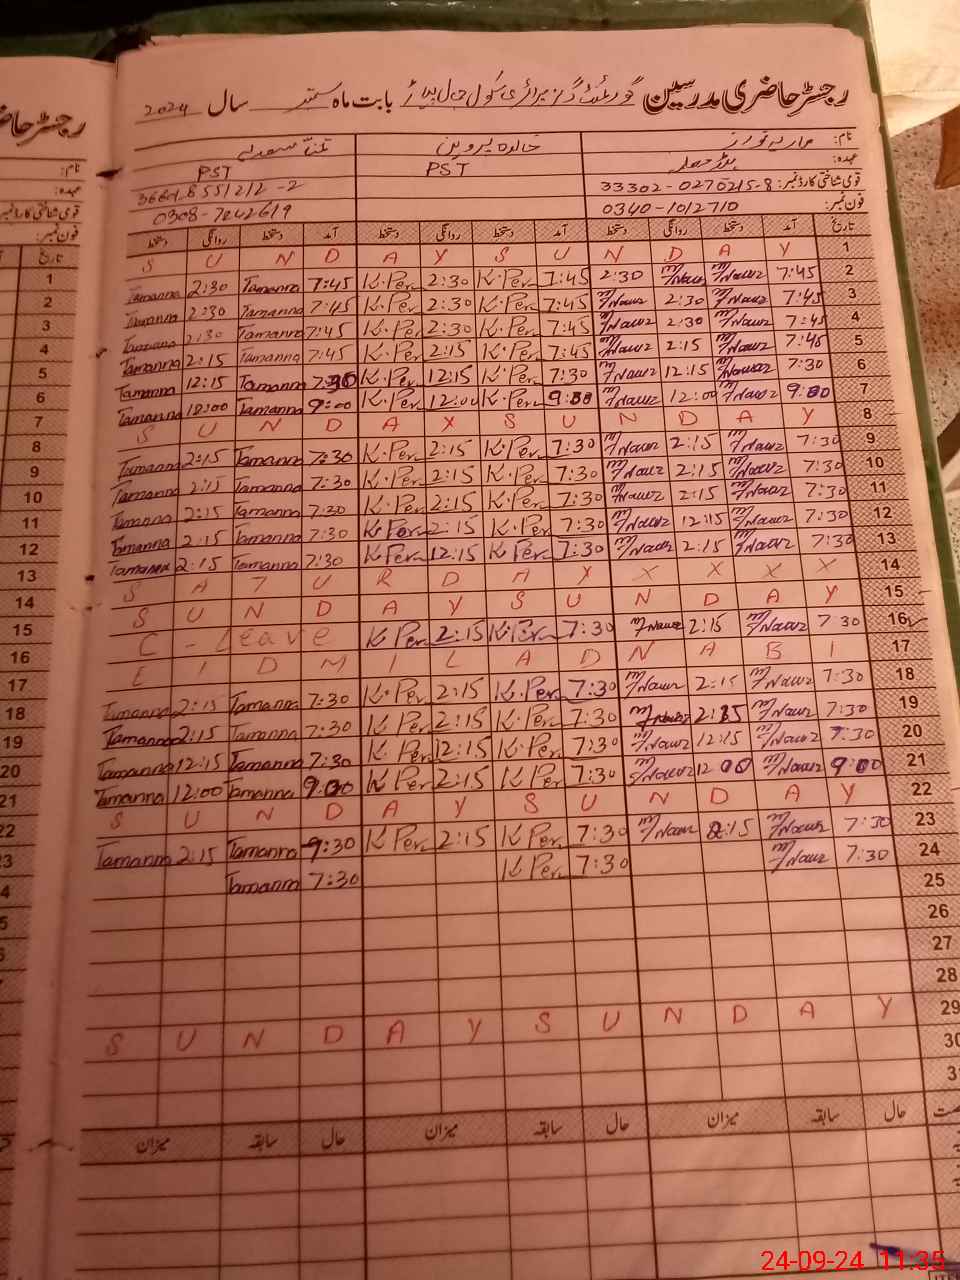 رجسٹر حاضری مدرسین گورنمنٹ گرلز پرائمری سکول بابت ماہ ستمبر سال 2024
نام: ماریہ نواز خالدہ پروین تمنا سعدیہ
عہدہ: ہیڈ PST PST
قومی شناختی کارڈ نمبر: 33302-0270215-8
فون نمبر: 0340-1012710 0308-7242619
تاریخ آمد دستخط روانگی دستخط آمد دستخط روانگی دستخط آمد دستخط روانگی دستخط
S U N D A Y S U N D A Y 1
Tamanna 2:30 Tamanna 7:45 K.Per 2:30 K.Per 7:45 2:30 M/Nawz M/Nawz 7:45 2
Tamanna 2:30 Tamanna 7:45 K.Per 2:30 K.Per 7:45 M/Nawz 2:30 M/Nawz 7:45 3
2:30 Tamanna 7:45 K.Per 2:30 K.Per 7:45 M/Nawz 2:30 M/Nawz 7:45 4
Tamanna 2:15 Tamanna 7:45 K.Per 2:15 K.Per 7:45 M/Nawz 2:15 M/Nawz 7:45 5
Tamanna 12:15 Tamanna 7:30 K.Per 12:15 K.Per 7:30 M/Nawz 12:15 M/Nawz 7:30 6
Tamanna 12:00 Tamanna 9:00 K.Per 12:00 K.Per 9:00 M/Nawz 12:00 M/Nawz 9:00 7
S U N D A Y S U N D A Y 8
Tamanna 2:15 Tamanna 7:30 K.Per 2:15 K.Per 7:30 M/Nawz 2:15 M/Nawz 7:30 9
Tamanna 2:15 Tamanna 7:30 K.Per 2:15 K.Per 7:30 M/Nawz 2:15 M/Nawz 7:30 10
Tamanna 2:15 Tamanna 7:30 K.Per 2:15 K.Per 7:30 M/Nawz 2:15 M/Nawz 7:30 11
Tamanna 2:15 Tamanna 7:30 K Per 2:15 K.Per 7:30 M/Nawz 12:15 M/Nawz 7:30 12
Tamanna 2:15 Tamanna 7:30 K Per 12:15 K Per 7:30 M/Nawz 2:15 M/Nawz 7:30 13
S A T U R D A Y X X X X 14
S U N D A Y S U N D A Y 15
C - Leave K Per 2:15 K.Per 7:30 M/Nawz 2:15 M/Nawz 7 30 16
E I D M I L A D N A B I 17
Tamanna 2:15 Tamanna 7:30 K.Per 2:15 K.Per 7:30 M/Nawz 2:15 M/Nawz 7:30 18
Tamanna 2:15 Tamanna 7:30 K.Per 2:15 K.Per 7:30 M/Nawz 2:15 M/Nawz 7:30 19
Tamanna 12:15 Tamanna 7:30 K Per 12:15 K.Per 7:30 M/Nawz 12:15 M/Nawz 7:30 20
Tamanna 12:00 Tamanna 9:00 K Per 2:15 K Per 7:30 M/Nawz 12 00 M/Nawz 9:00 21
S U N D A Y S U N D A Y 22
Tamanna 2:15 Tamanna 9:30 K Per 2:15 K Per 7:30 M/Nawz 2:15 M/Nawz 7:30 23
Tamanna 7:30 K Per 7:30 M/Nawz 7:30 24
25
26
27
28
S U N D A Y S U N D A Y 29
30
3
حال سابقہ میزان حال سابقہ میزان حال سابقہ میزان
24-09-24 11:35